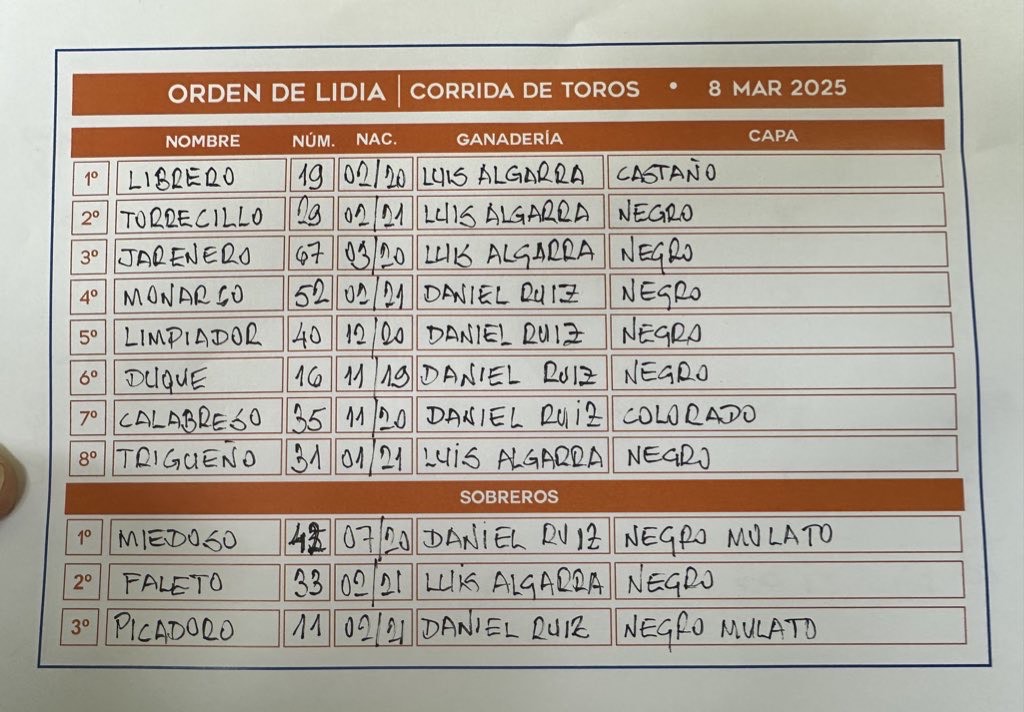 ORDEN DE LIDIA | CORRIDA DE TOROS • 8 MAR 2025
NOMBRE NÚM. NAC. GANADERÍA CAPA
1º LIBRERO 19 02/20 LUIS ALGARRA CASTAÑO
2º TORRECILLO 29 02/21 LUIS ALGARRA NEGRO
3º JARENERO 67 03/20 LUIS ALGARRA NEGRO
4º MONARCO 52 02/21 DANIEL RUIZ NEGRO
5º LIMPIADOR 40 12/20 DANIEL RUIZ NEGRO
6º DUQUE 16 11/19 DANIEL RUIZ NEGRO
7º CALABRESO 35 11/20 DANIEL RUIZ COLORADO
8º TRIGUEÑO 31 01/21 LUIS ALGARRA NEGRO
SOBREROS
1º MIEDOSO 07/20 DANIEL RUIZ NEGRO MULATO
2º FALETO 33 02/21 LUIS ALGARRA NEGRO
3º PICADORO 11 02/21 DANIEL RUIZ NEGRO MULATO